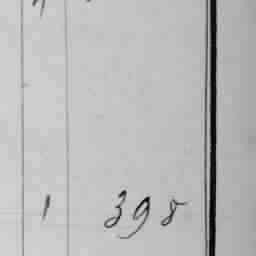 1 398